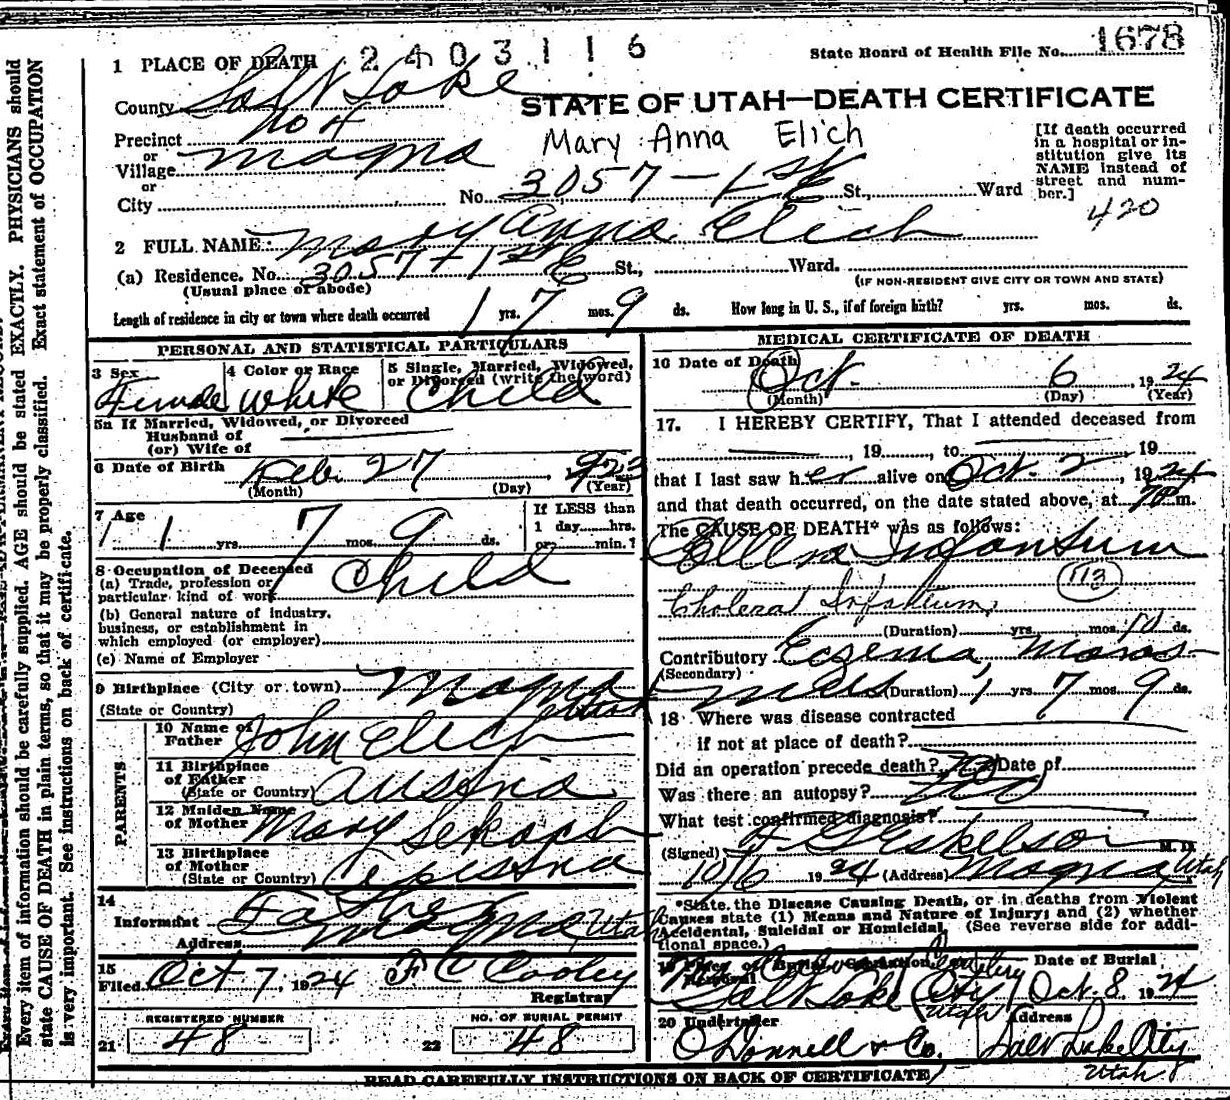 2403116
State Board of Health File No. 1678
1 PLACE OF DEATH
County Salt Lake
STATE OF UTAH—DEATH CERTIFICATE
Precinct No 4
Mary Anna Elich
or
Village Magna
or
City
No. 3057 - 1st St., Ward
[If death occurred in a hospital or institution give its NAME instead of street and number.]
420
2 FULL NAME: Mary Anna Elich
(a) Residence. No. 3057 + 1st St., Ward.
(Usual place of abode)
(IF NON-RESIDENT GIVE CITY OR TOWN AND STATE)
Length of residence in city or town where death occurred 1 yrs. 7 mos. 9 ds. How long in U. S., if of foreign birth? yrs. mos. ds.
PERSONAL AND STATISTICAL PARTICULARS
3 Sex Female
4 Color or Race White
5 Single, Married, Widowed, or Divorced (write the word) Child
5a If Married, Widowed, or Divorced
Husband of
(or) Wife of
6 Date of Birth Feb. 27
(Month) (Day) (Year)
7 Age 1 yrs. 7 mos. 9 ds.
If LESS than
1 day hrs.
or min.?
8 Occupation of Deceased
(a) Trade, profession or
particular kind of work Child
(b) General nature of industry,
business, or establishment in
which employed (or employer)
(c) Name of Employer
9 Birthplace (City or town) Magna
(State or Country) Utah
PARENTS
10 Name of
Father John Elich
11 Birthplace
of Father
(State or Country) Austria
12 Maiden Name
of Mother Mary
13 Birthplace
of Mother
(State or Country)
14
Informant Father
Address Magna Utah
15
Filed Oct 7, 1924 F C Cooley
Registrar
REGISTERED NUMBER
21 48
NO. OF BURIAL PERMIT
22 48
MEDICAL CERTIFICATE OF DEATH
16 Date of Death
Oct. 6, 1924
(Month) (Day) (Year)
17. I HEREBY CERTIFY, That I attended deceased from
, 19 , to , 19
that I last saw her alive on Oct. 2, 1924
and that death occurred, on the date stated above, at m.
The CAUSE OF DEATH* was as follows:
Infantum
113
Cholera Infantum
(Duration) yrs. mos. 10 ds.
Contributory Eczema, Maras-
(Secondary)
mus (Duration) 1 yrs. 7 mos. 9 ds.
18 Where was disease contracted
if not at place of death?
Did an operation precede death? No Date of
Was there an autopsy? No
What test confirmed diagnosis?
(Signed) M. D.
10/6 1924 (Address) Magna Utah
*State the Disease Causing Death, or in deaths from Violent
Causes state (1) Means and Nature of Injury; and (2) whether
Accidental, Suicidal or Homicidal. (See reverse side for addi-
tional space.)
19 Place of Burial, Cremation, or Removal
Date of Burial
Salt Lake City Utah
Oct. 8, 1924
20 Undertaker
Address
O'Donnell & Co.
Salt Lake City
Utah
READ CAREFULLY INSTRUCTIONS ON BACK OF CERTIFICATE
Every item of information should be carefully supplied. AGE should be stated EXACTLY. PHYSICIANS should
state CAUSE OF DEATH in plain terms, so that it may be properly classified. Exact statement of OCCUPATION
is very important. See instructions on back of certificate.